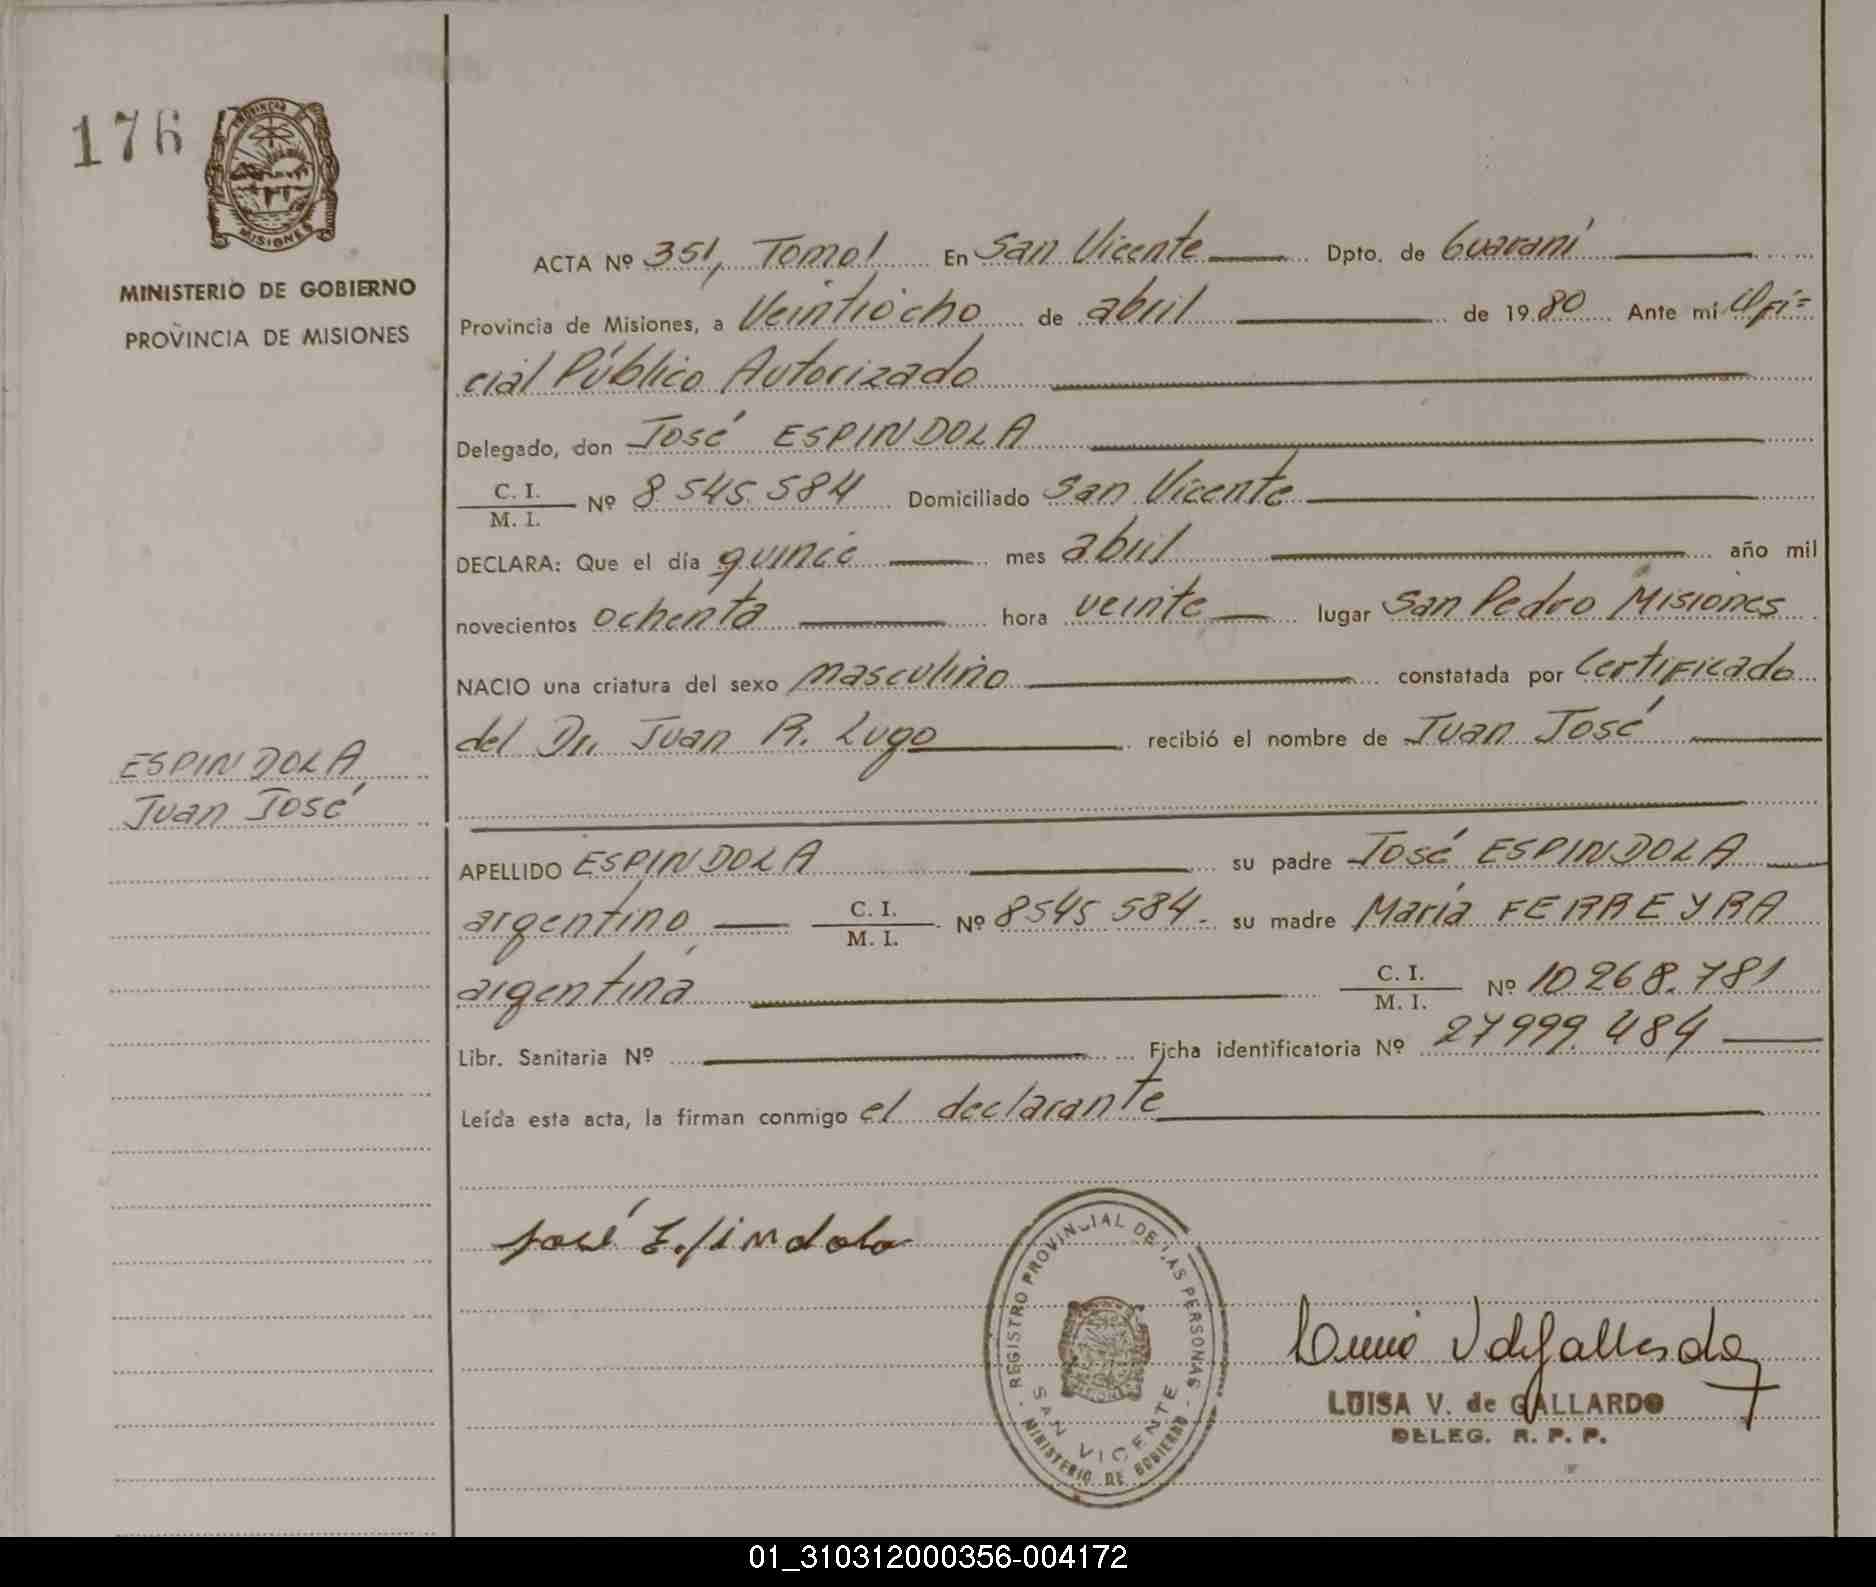 176
PROVINCIA DE
MISIONES
MINISTERIO DE GOBIERNO
PROVINCIA DE MISIONES
ESPINDOLA
Juan José
ACTA Nº 351, Tomo I En San Vicente Dpto. de Guaraní
Provincia de Misiones, a Veintiocho de abril de 19 80 Ante mi Ofi=
cial Público Autorizado
Delegado, don José ESPINDOLA
C. I.
M. I. Nº 8.545.584 Domiciliado San Vicente
DECLARA: Que el día quince mes abril año mil
novecientos ochenta hora veinte lugar San Pedro Misiones
NACIO una criatura del sexo masculino constatada por Certificado
del Dr. Juan R. Lugo recibió el nombre de Juan José
APELLIDO ESPINDOLA su padre José ESPINDOLA
argentino C. I.
M. I. Nº 8545.584. su madre María FERREYRA
argentina C. I.
M. I. Nº 10.268.781
Libr. Sanitaria Nº Ficha identificatoria Nº 27999.484
Leída esta acta, la firman conmigo el declarante
José Espindola
REGISTRO PROVINCIAL DE LAS PERSONAS
SAN VICENTE
MINISTERIO DE GOBIERNO
LUISA V. de GALLARDO
DELEG. R. P. P.
01_310312000356-004172